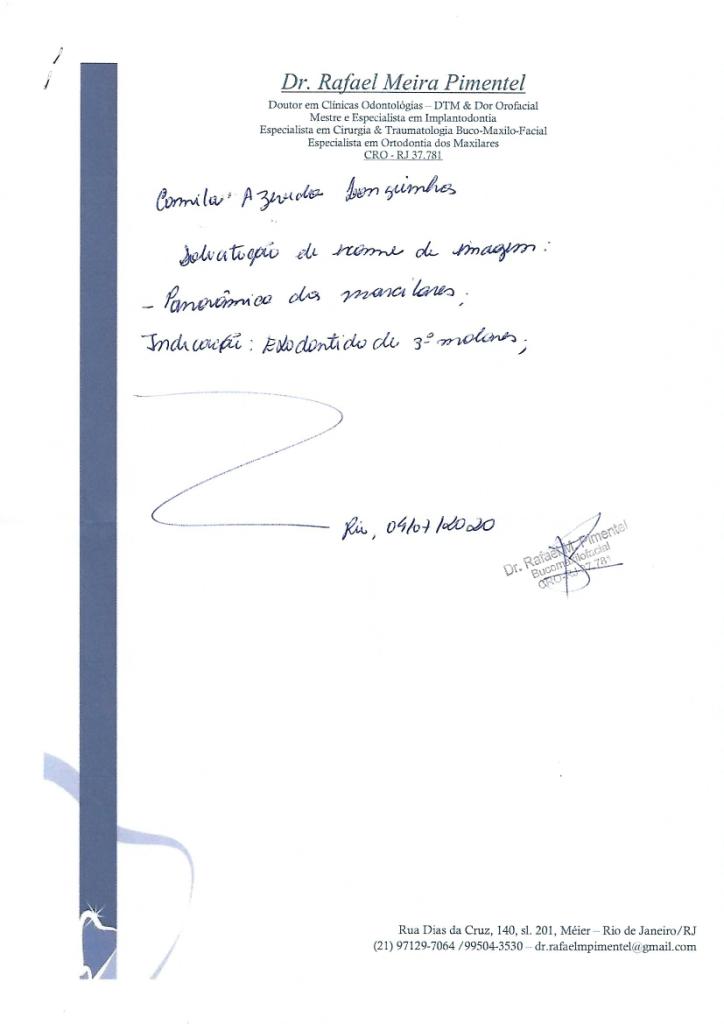 Dr. Rafael Meira Pimentel
Doutor em Clínicas Odontológias – DTM & Dor Orofacial
Mestre e Especialista em Implantodontia
Especialista em Cirurgia & Traumatologia Buco-Maxilo-Facial
Especialista em Ortodontia dos Maxilares
CRO - RJ 37.781
Camila Azevedo
Solicitação de exame de imagem:
- Panorâmica dos maxilares;
Indicação: Exodontia de 3º molares;
Rio, 04/07/2020
Dr. Rafael M. Pimentel
Bucomaxilofacial
CRO-RJ 37.781
Rua Dias da Cruz, 140, sl. 201, Méier – Rio de Janeiro/RJ
(21) 97129-7064 /99504-3530 – dr.rafaelmpimentel@gmail.com